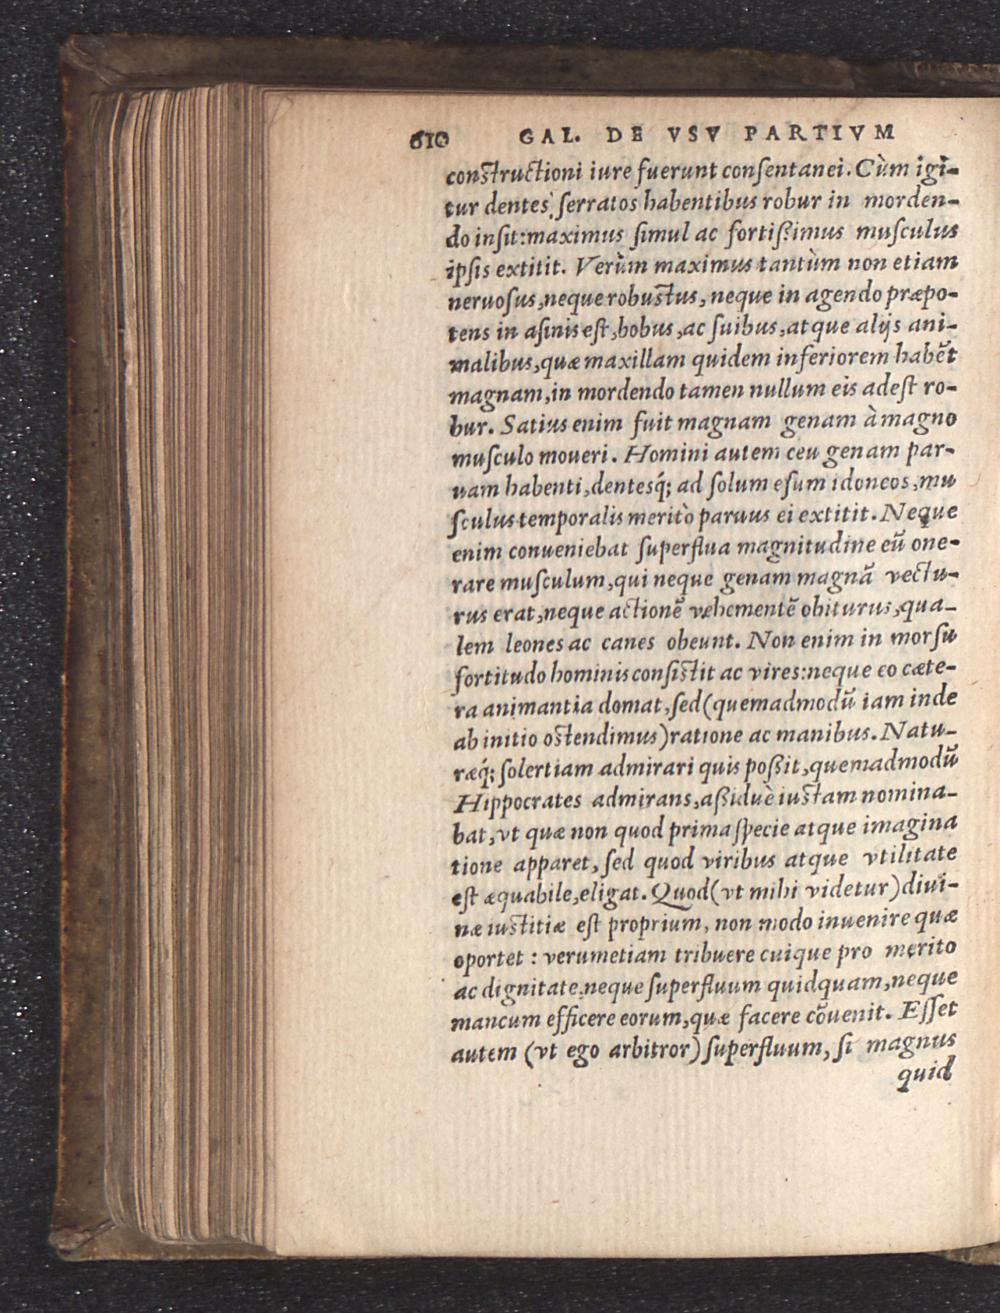 610 GAL. DE VSV PARTIVM
constructioni iure fuerunt consentanei. Cùm igi-
tur dentes serratos habentibus robur in morden-
do insit: maximus simul ac fortissimus musculus
ipsis extitit. Verùm maximus tantùm non etiam
neruosus, neque robustus, neque in agendo præpo-
tens in asinis est, bobus, ac suibus, atque alijs ani-
malibus, quæ maxillam quidem inferiorem habẽt
magnam, in mordendo tamen nullum eis adest ro-
bur. Satius enim fuit magnam genam à magno
musculo moueri. Homini autem ceu genam par-
uam habenti, dentesq́; ad solum esum idoneos, mu
sculus temporalis meritò paruus ei extitit. Neque
enim conueniebat superflua magnitudine eũ one-
rare musculum, qui neque genam magnã vectu-
rus erat, neque actionẽ vehementẽ obiturus, qua-
lem leones ac canes obeunt. Non enim in morsu
fortitudo hominis consistit ac vires: neque eo cæte-
ra animantia domat, sed (quemadmodũ iam inde
ab initio ostendimus) ratione ac manibus. Natu-
ræq́; solertiam admirari quis possit, quemadmodũ
Hippocrates admirans, assiduè iustam nomina-
bat, vt quæ non quod prima specie atque imagina
tione apparet, sed quod viribus atque vtilitate
est æquabile, eligat. Quod (vt mihi videtur) diui-
næ iustitiæ est proprium, non modo inuenire quæ
oportet: verumetiam tribuere cuique pro merito
ac dignitate, neque superfluum quidquam, neque
mancum efficere eorum, quæ facere cõuenit. Esset
autem (vt ego arbitror) superfluum, si magnus
quid